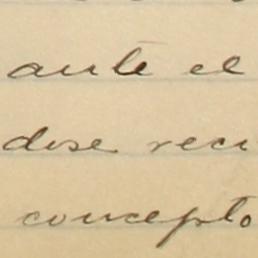 ante el
dose reci
concepto